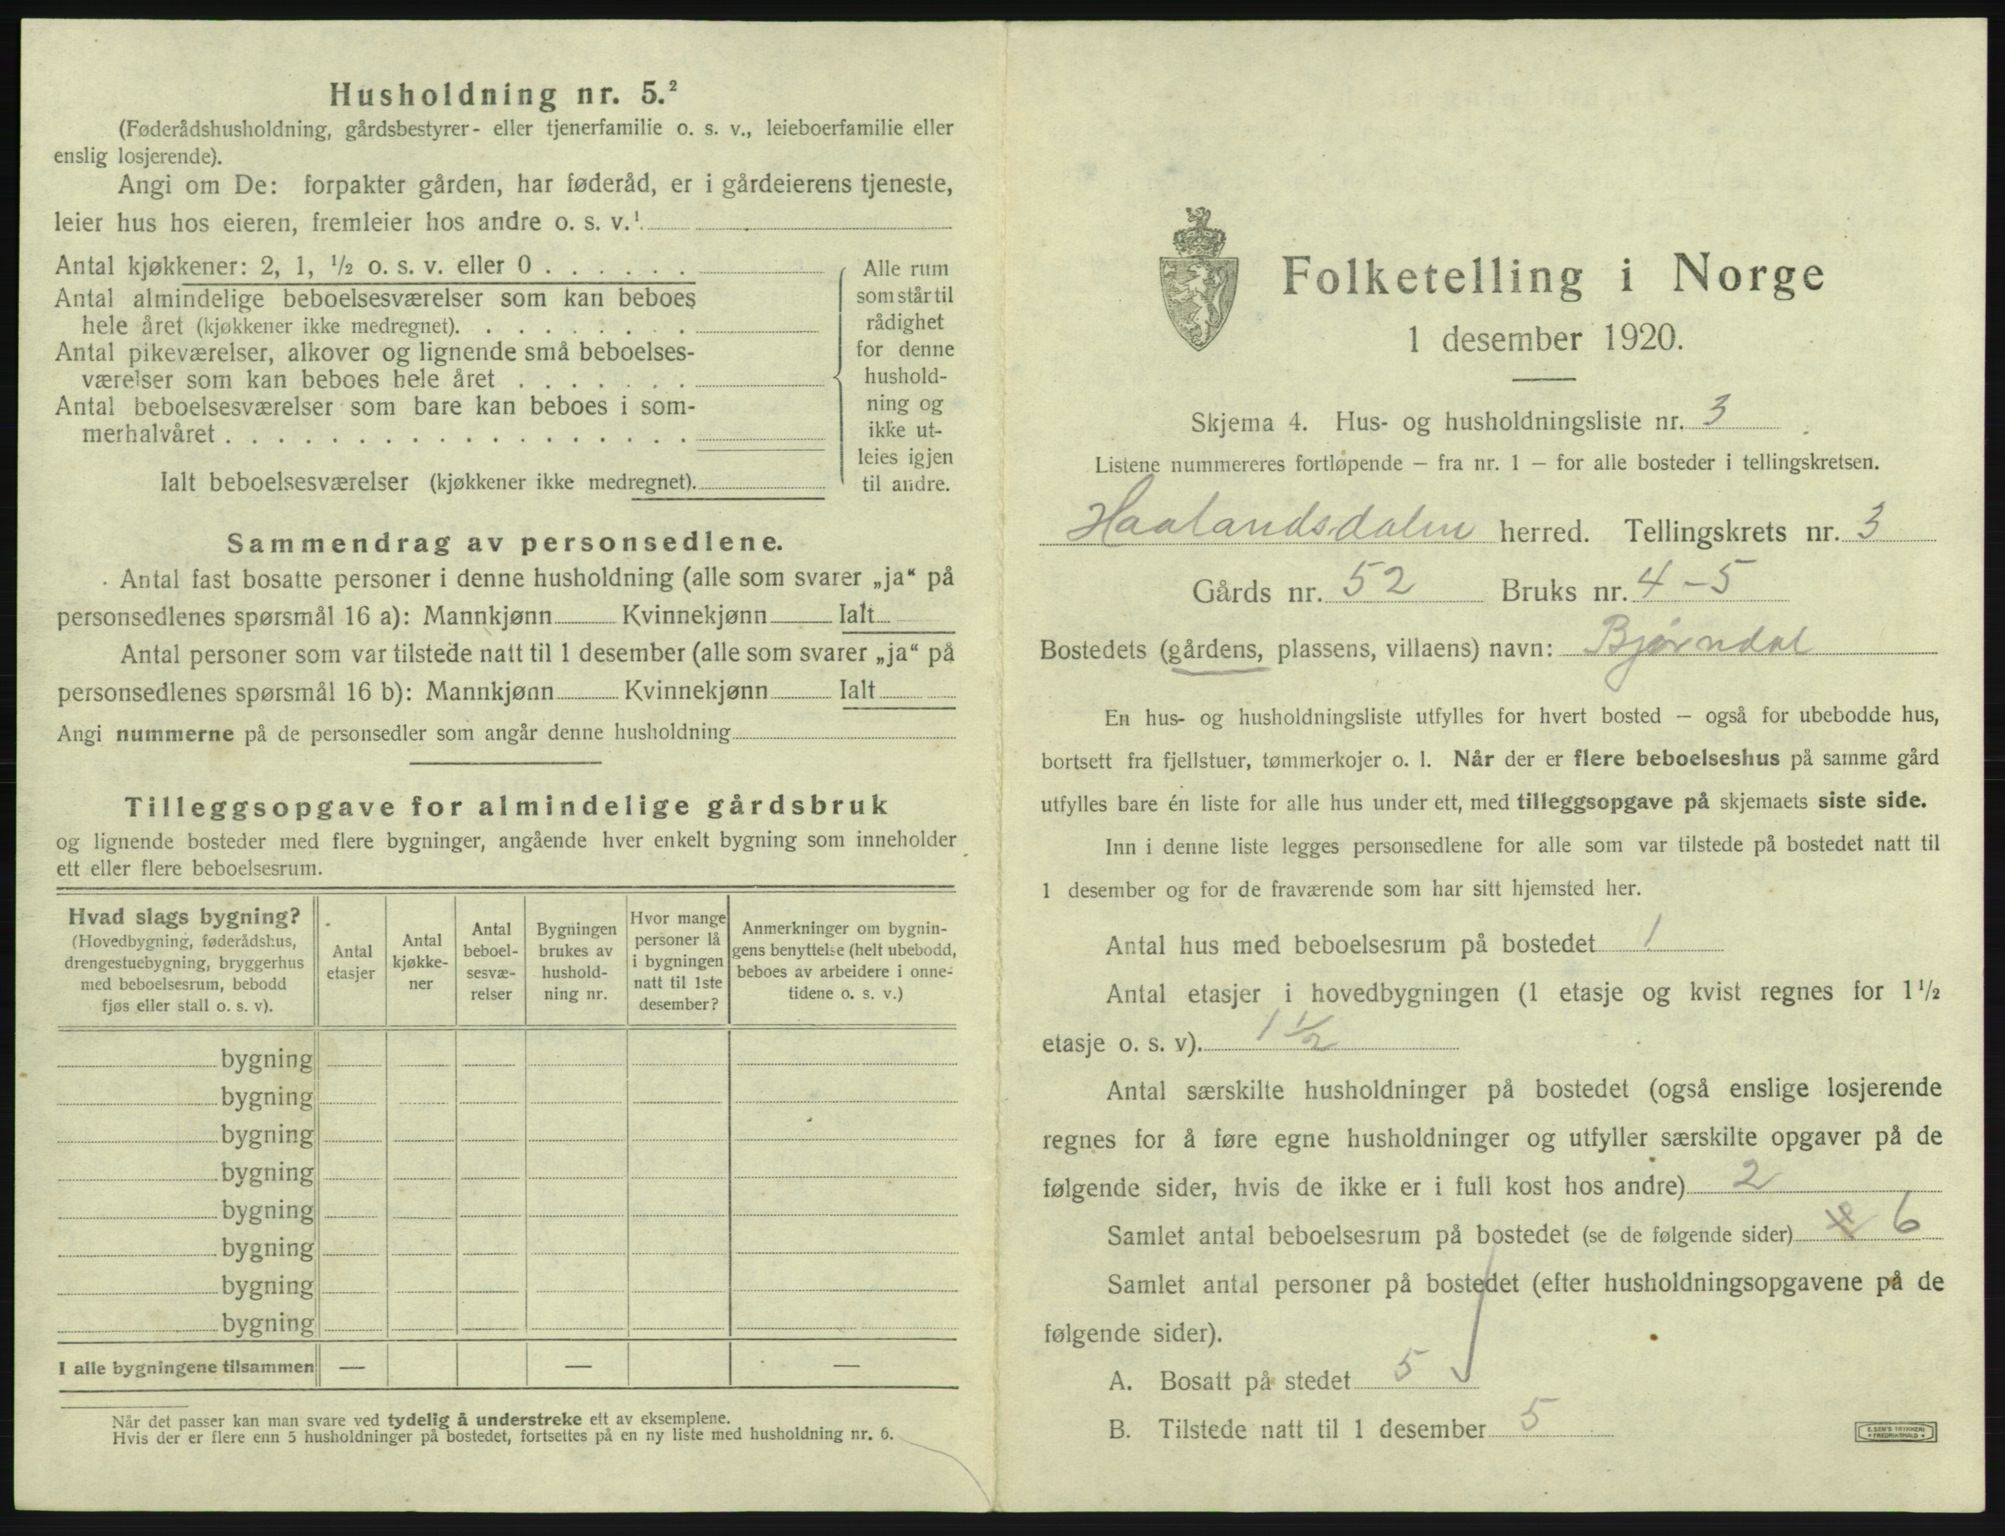 Husholdning nr. 5.²
(Føderådshusholdning, gårdsbestyrer- eller tjenerfamilie o. s. v., leieboerfamilie eller
enslig losjerende).
Angi om De: forpakter gården, har føderåd, er i gårdeierens tjeneste,
leier hus hos eieren, fremleier hos andre o. s. v.¹
Antal kjøkkener: 2, 1, ½ o. s. v. eller 0
Antal almindelige beboelsesværelser som kan beboes
hele året (kjøkkener ikke medregnet).
Antal pikeværelser, alkover og lignende små beboelses-
værelser som kan beboes hele året
Antal beboelsesværelser som bare kan beboes i som-
merhalvåret
Ialt beboelsesværelser (kjøkkener ikke medregnet).
Alle rum
som står til
rådighet
for denne
hushold-
ning og
ikke ut-
leies igjen
til andre.
Sammendrag av personsedlene.
Antal fast bosatte personer i denne husholdning (alle som svarer „ja“ på
personsedlenes spørsmål 16 a): Mannkjønn Kvinnekjønn Ialt
Antal personer som var tilstede natt til 1 desember (alle som svarer „ja“ på
personsedlenes spørsmål 16 b): Mannkjønn Kvinnekjønn Ialt
Angi nummerne på de personsedler som angår denne husholdning
Tilleggsopgave for almindelige gårdsbruk
og lignende bosteder med flere bygninger, angående hver enkelt bygning som inneholder
ett eller flere beboelsesrum.
Hvad slags bygning?
(Hovedbygning, føderådshus,
drengestuebygning, bryggerhus
med beboelsesrum, bebodd
fjøs eller stall o. s. v).
Antal
etasjer
Antal
kjøkke-
ner
Antal
beboel-
sesvæ-
relser
Bygningen
brukes av
hushold-
ning nr.
Hvor mange
personer lå
i bygningen
natt til 1ste
desember?
Anmerkninger om bygnin-
gens benyttelse (helt ubebodd,
beboes av arbeidere i onne-
tidene o. s. v.)
bygning
bygning
bygning
bygning
bygning
bygning
bygning
bygning
I alle bygningene tilsammen — — —
Når det passer kan man svare ved tydelig å understreke ett av eksemplene.
Hvis der er flere enn 5 husholdninger på bostedet, fortsettes på en ny liste med husholdning nr. 6.
Folketelling i Norge
1 desember 1920.
Skjema 4. Hus- og husholdningsliste nr. 3
Listene nummereres fortløpende – fra nr. 1 – for alle bosteder i tellingskretsen.
Haalandsdalen herred. Tellingskrets nr. 3
Gårds nr. 52 Bruks nr. 4-5
Bostedets (gårdens, plassens, villaens) navn: Bjørndal
En hus- og husholdningsliste utfylles for hvert bosted – også for ubebodde hus,
bortsett fra fjellstuer, tømmerkojer o. l. Når der er flere beboelseshus på samme gård
utfylles bare én liste for alle hus under ett, med tilleggsopgave på skjemaets siste side.
Inn i denne liste legges personsedlene for alle som var tilstede på bostedet natt til
1 desember og for de fraværende som har sitt hjemsted her.
Antal hus med beboelsesrum på bostedet 1
Antal etasjer i hovedbygningen (1 etasje og kvist regnes for 1½
etasje o. s. v). 1½
Antal særskilte husholdninger på bostedet (også enslige losjerende
regnes for å føre egne husholdninger og utfyller særskilte opgaver på de
følgende sider, hvis de ikke er i full kost hos andre) 2
Samlet antal beboelsesrum på bostedet (se de følgende sider) 6
Samlet antal personer på bostedet (efter husholdningsopgavene på de
følgende sider).
A. Bosatt på stedet 5
B. Tilstede natt til 1 desember 5
E. SEM'S TRYKKERI
FREDRIKSHALD